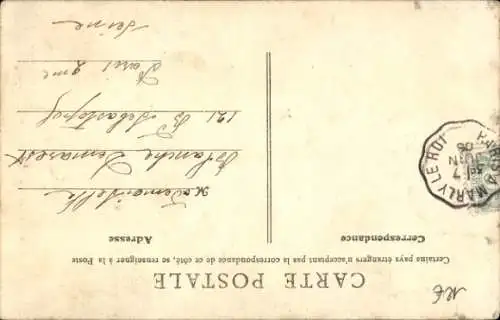 CARTE POSTALE
Certains pays étrangers n'acceptant pas la correspondance de ce côté, se renseigner à la Poste
Correspondance
Adresse
Mademoiselle
Blanche Demarest
121 Bd Sébastopol
Paris 2me
Seine
MARLY LE ROI
7
JUIN
06